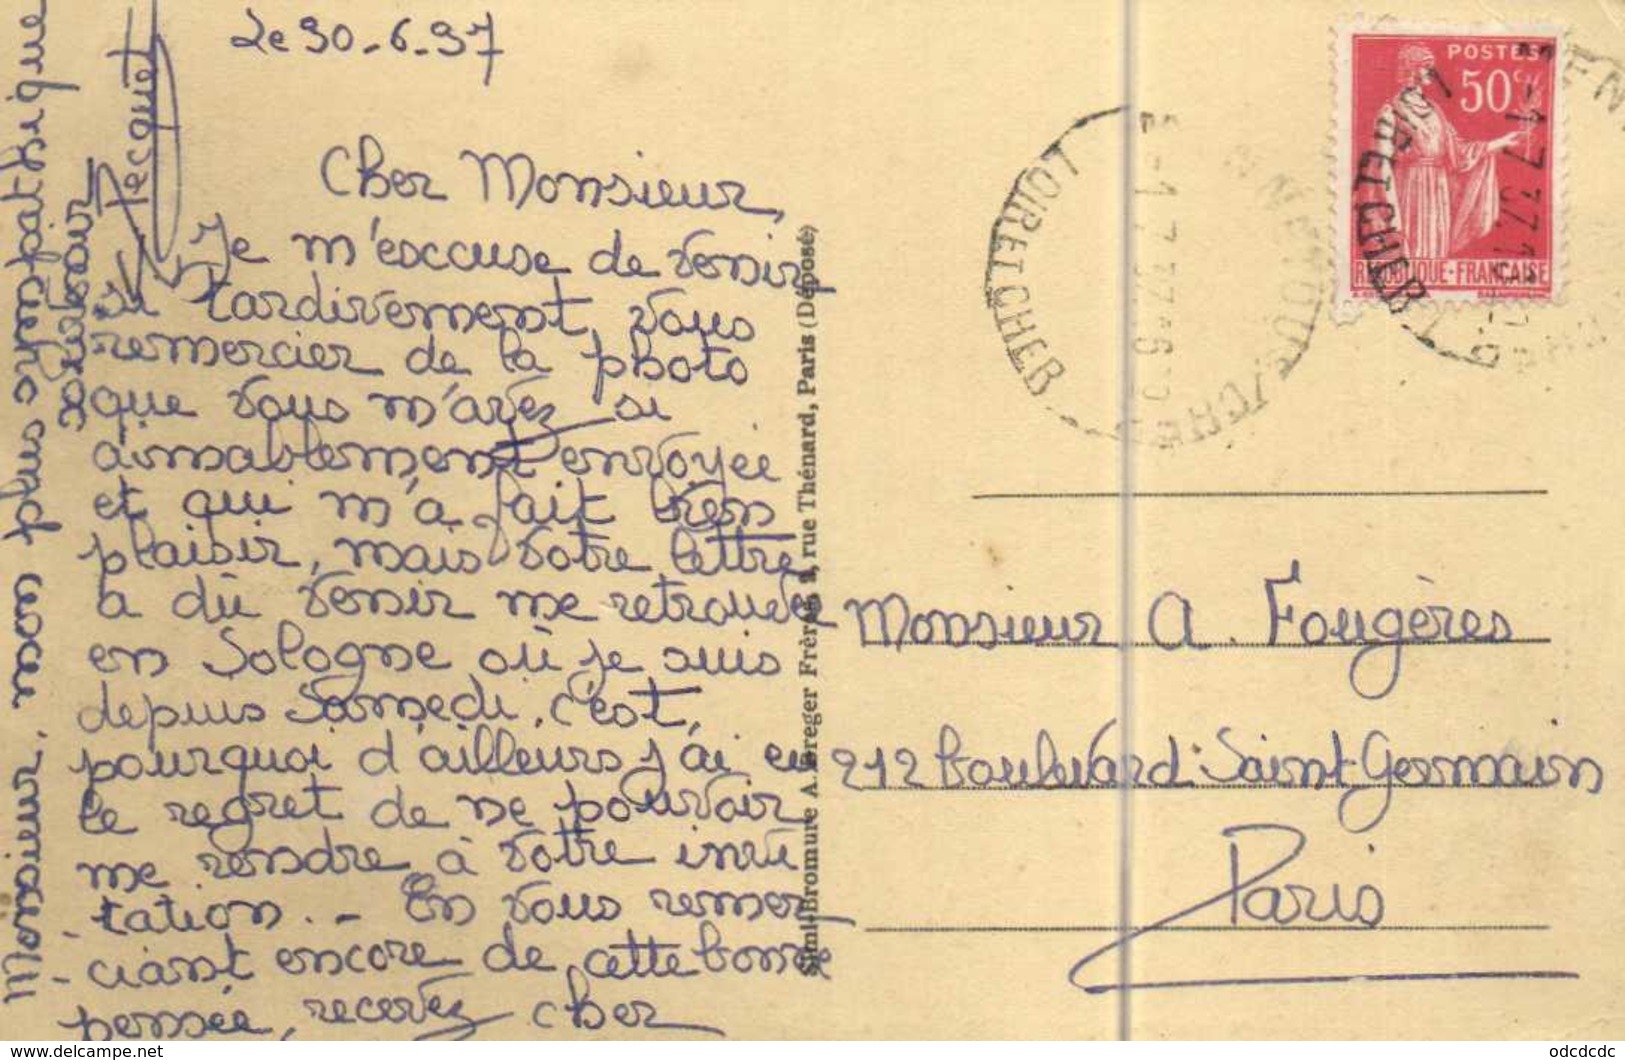 Le 30-6-37
Cher Monsieur,
Je m'excuse de venir
si tardivement, vous
remercier de la photo
que vous m'avez si
aimablement envoyée
et qui m'a fait bien
plaisir, mais votre lettre
a dû venir me retrouver
en Sologne où je suis
depuis Samedi, c'est,
pourquoi d'ailleurs j'ai eu
le regret de ne pouvoir
me rendre, à votre invi
tation. - En vous remer
- ciant encore de cette bonne
pensée, recevez cher
Monsieur, mon plus sympathique
souvenir
Simili-Bromure A. Breger Frères, 9, rue Thénard, Paris (Déposé)
POSTES
50c
REPUBLIQUE-FRANÇAISE
LOIR ET CHER
-1-7 37
LOIR ET CHER
-1-7 37
Monsieur A. Fougères
212 boulevard Saint Germain
Paris
www.delcampe.net
odcdcdc